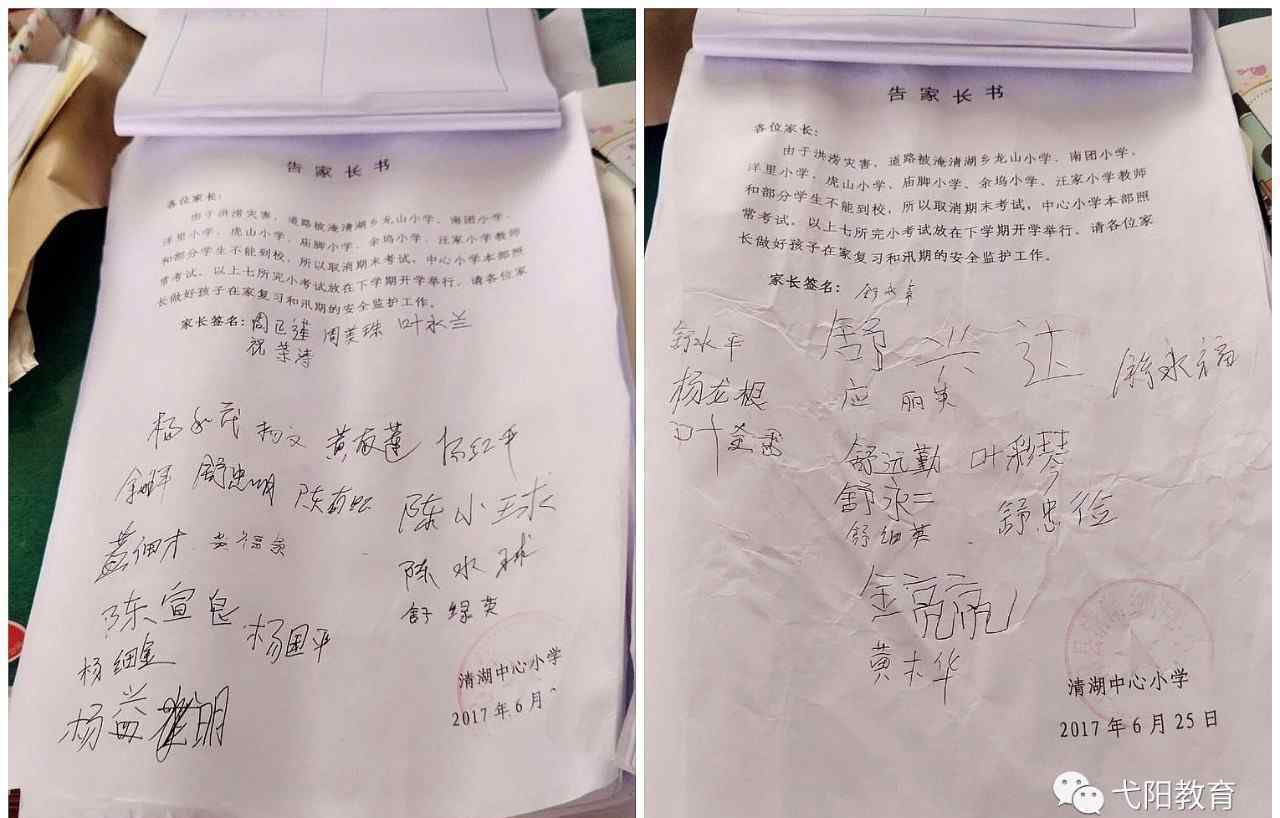 告家长书
各位家长：
由于洪涝灾害，道路被淹清湖乡龙山小学、南团小学、
洋里小学、虎山小学、庙脚小学、余坞小学、汪家小学教师
和部分学生不能到校，所以取消期末考试，中心小学本部照
常考试。以上七所完小考试放在下学期开学举行。请各位家
长做好孩子在家复习和汛期的安全监护工作。
家长签名： 周英珠 叶水兰
祝荣涛
杨文 杨红平
周忠明 陈有
陈小球
陈水球
陈宣皂
舒绿英
杨国平
杨细金
杨益 明
清湖中心小学
2017年6月
告家长书
各位家长：
由于洪涝灾害，道路被淹清湖乡龙山小学、南团小学、
洋里小学、虎山小学、庙脚小学、余坞小学、汪家小学教师
和部分学生不能到校，所以取消期末考试，中心小学本部照
常考试。以上七所完小考试放在下学期开学举行。请各位家
长做好孩子在家复习和汛期的安全监护工作。
家长签名：
舒水平 舒兴达 舒永福
杨龙根 应丽英
叶
舒远勤 叶彩琴
舒永二 舒忠俭
舒细英
金亮亮
黄木华
清湖中心小学
2017年6月25日
弋阳教育